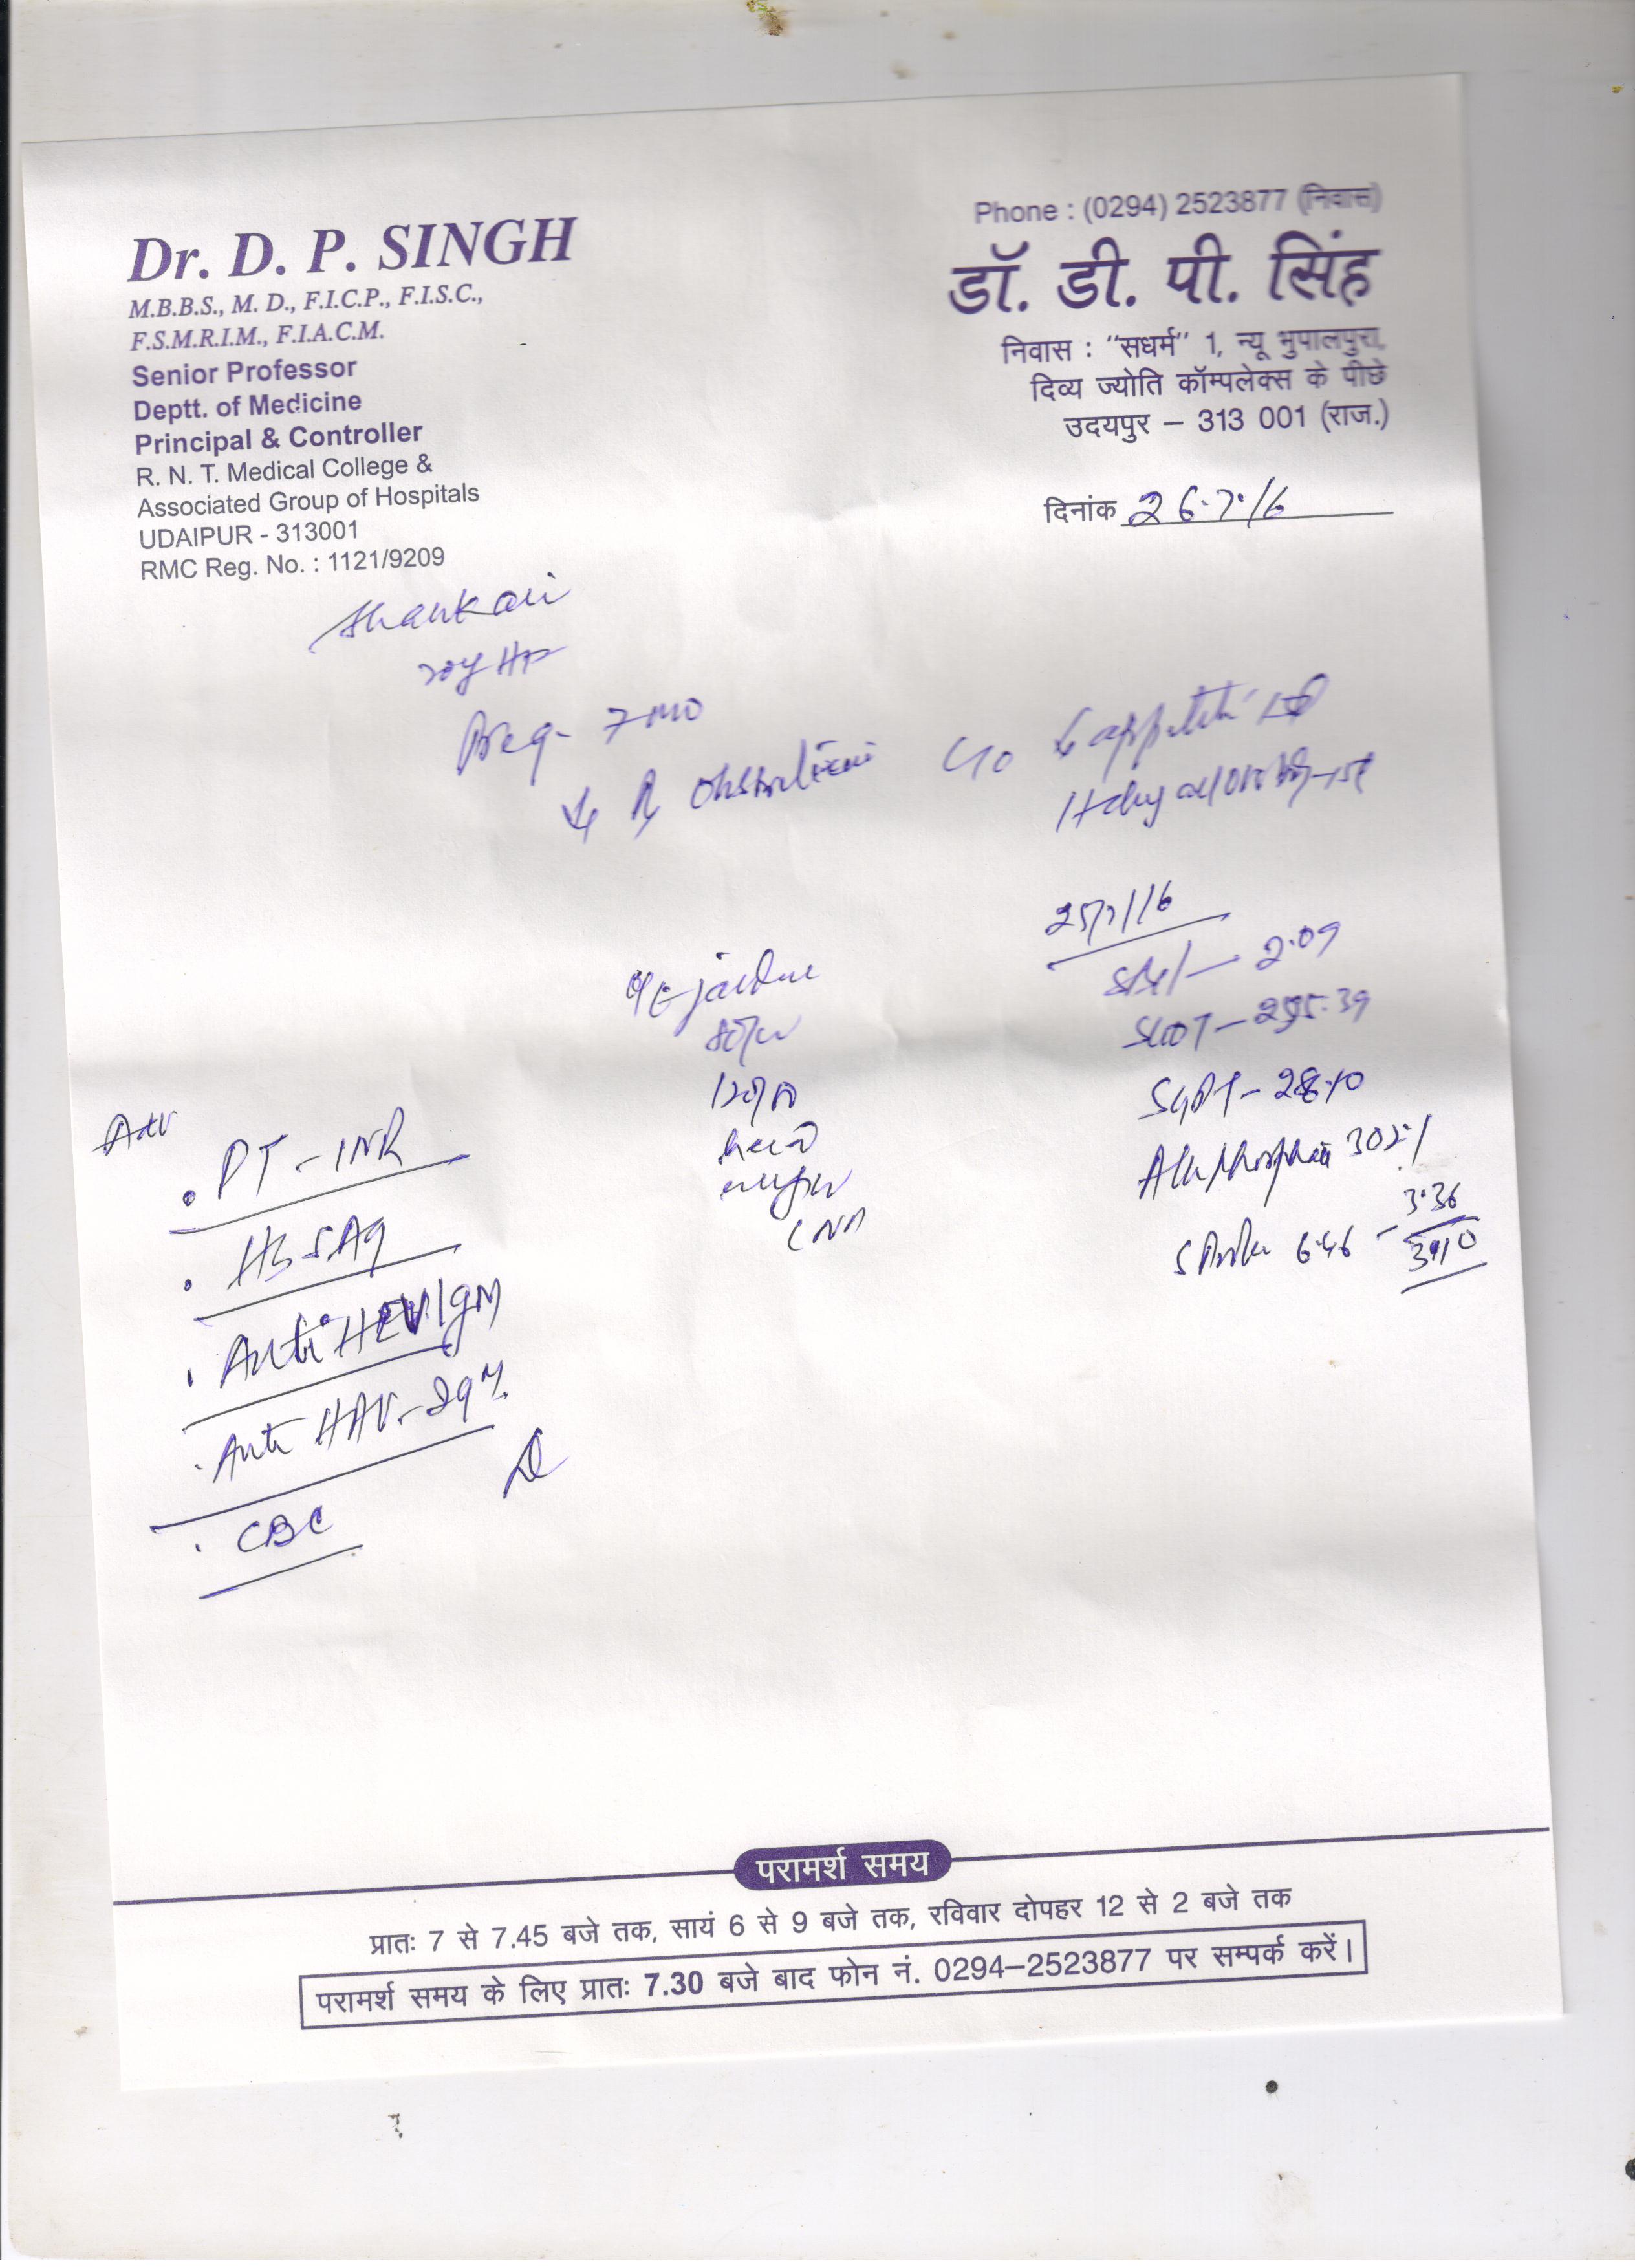 Dr. D. P. SINGH
M.B.B.S., M. D., F.I.C.P., F.I.S.C.,
F.S.M.R.I.M., F.I.A.C.M.
Senior Professor
Deptt. of Medicine
Principal & Controller
R. N. T. Medical College &
Associated Group of Hospitals
UDAIPUR - 313001
RMC Reg. No. : 1121/9209
Phone : (0294) 2523877 (निवास)
डॉ. डी. पी. सिंह
निवास : "सधर्म" 1, न्यू भुपालपुरा,
दिव्य ज्योति कॉम्पलेक्स के पीछे
उदयपुर – 313 001 (राज.)
दिनांक 26.7.16
Shankari
Preg - 7 mo
C/o appetite
Itching all over body
25/7/16
2.09
SGOT -
SGPT -
Alk phosphate
6.46 - 3.36
3.10
O/E jaundice
CNS
Adv
. PT - INR
. HBSAg
. Anti HEV IgM
. Anti HAV - IgM
. CBC
परामर्श समय
प्रातः 7 से 7.45 बजे तक, सायं 6 से 9 बजे तक, रविवार दोपहर 12 से 2 बजे तक
परामर्श समय के लिए प्रातः 7.30 बजे बाद फोन नं. 0294–2523877 पर सम्पर्क करें।